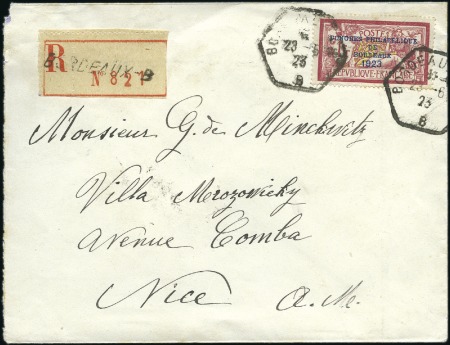 R
BORDEAUX B
N 821
BORDEAUX
23 -6
23
B
POSTES
CONGRES PHILATELIQUE
DE
BORDEAUX
1923
REPUBLIQUE FRANÇAISE
BORDEAUX
23 -6
23
B
Monsieur G. de Minckwitz
Villa Merozowicky
Avenue Comba
Nice A.M.